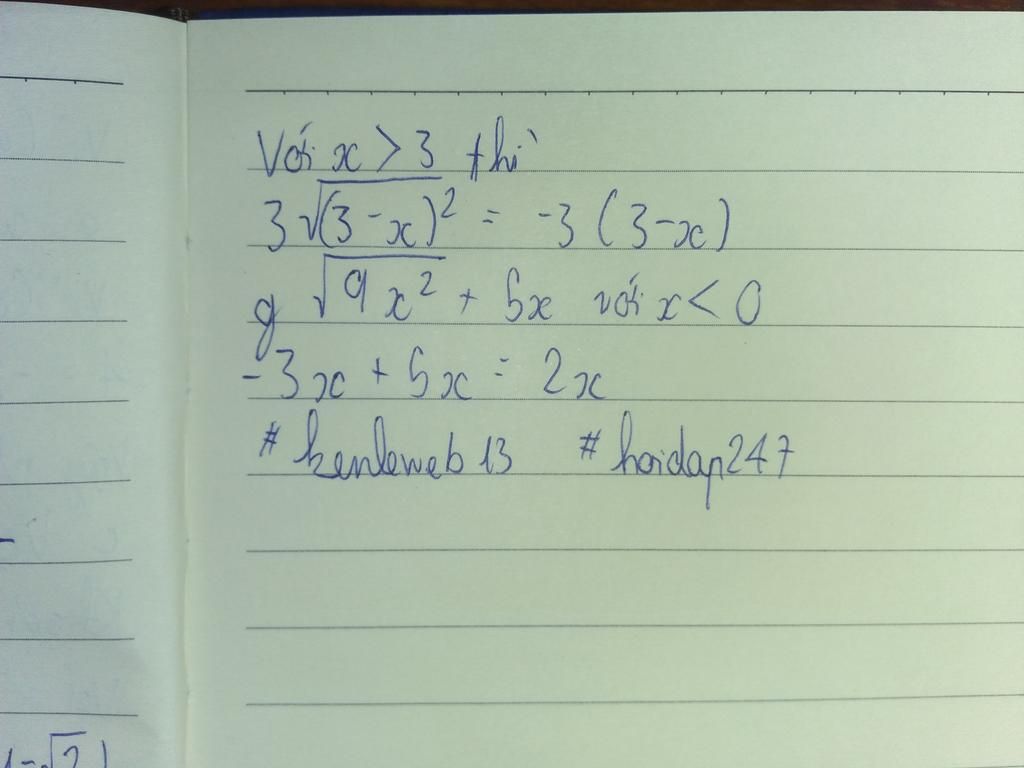 Với x > 3 thì
3√(3-x)² = -3 (3-x)
g √9x² + 5x với x < 0
-3x + 5x = 2x
# kenleweb13 # hoidap247
1-√2)